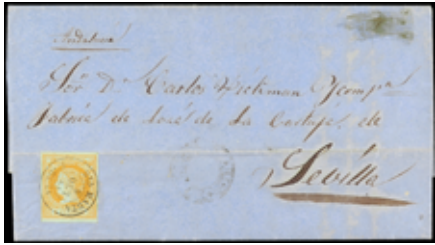 Andalucia
Sor. Dn. Carlos Pickman y compa.
Fabrica de Loza de La Cartuja de
Sevilla